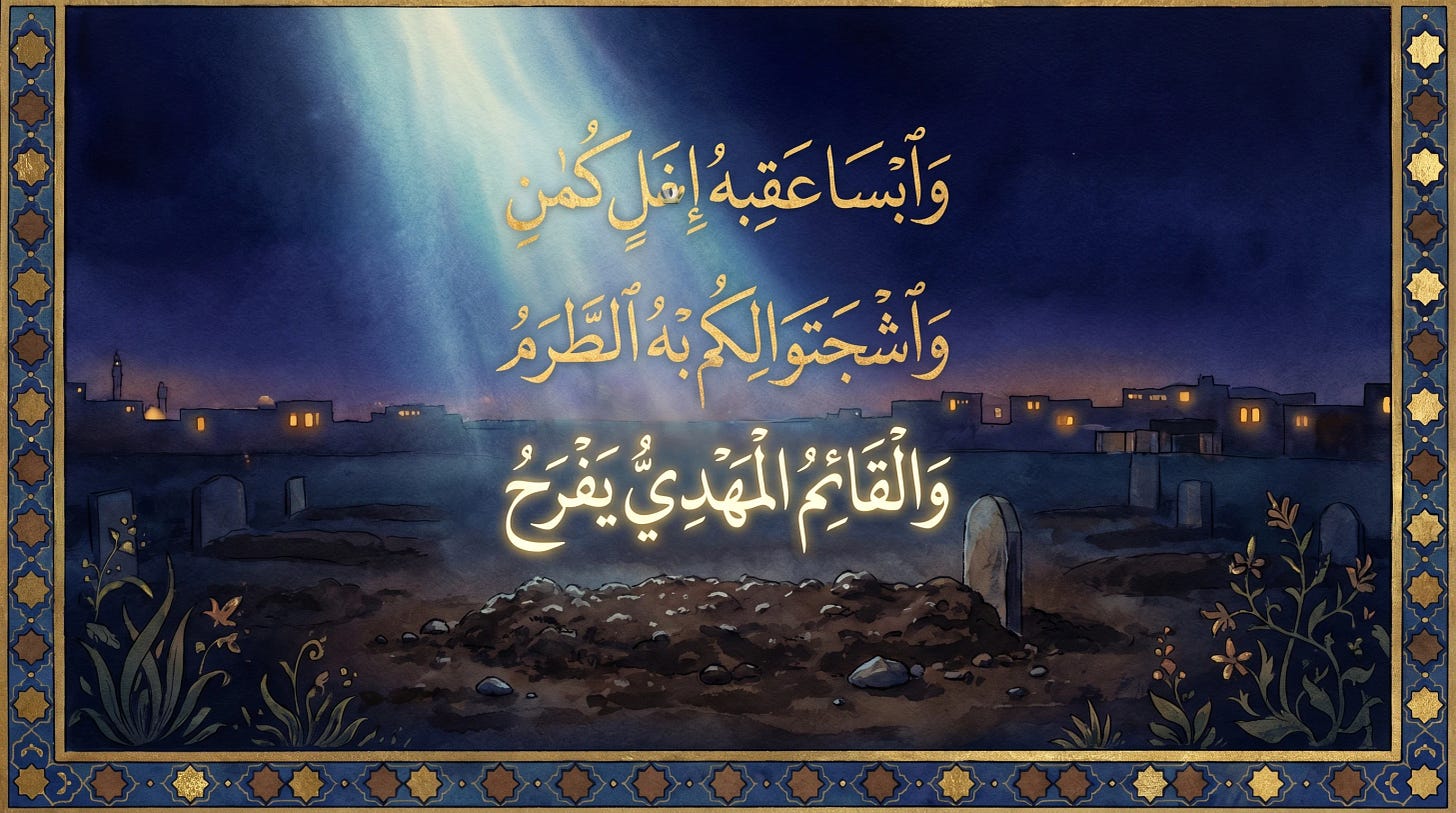 وَٱبْسَا عَقِبهُ إِغَلٍ كُمٰنِ
وَٱشْجَتوَالِكُم بْهُ ٱلطَّرَمُ
وَالْقَائِمُ الْمَهْدِيُّ يَفْرَحُ